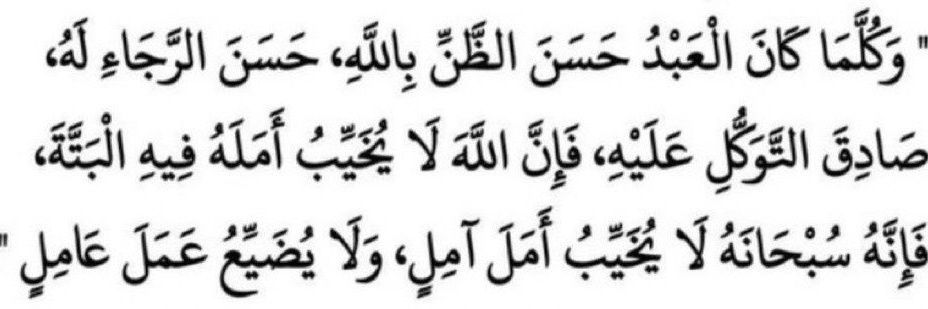 " وَكُلَّمَا كَانَ الْعَبْدُ حَسَنَ الظَّنِّ بِاللَّهِ، حَسَنَ الرَّجَاءِ لَهُ،
صَادِقَ التَّوَكُّلِ عَلَيْهِ، فَإِنَّ اللَّهَ لَا يُخَيِّبُ أَمَلَهُ فِيهِ الْبَتَّةَ،
فَإِنَّهُ سُبْحَانَهُ لَا يُخَيِّبُ أَمَلَ آمِلٍ، وَلَا يُضَيِّعُ عَمَلَ عَامِلٍ "